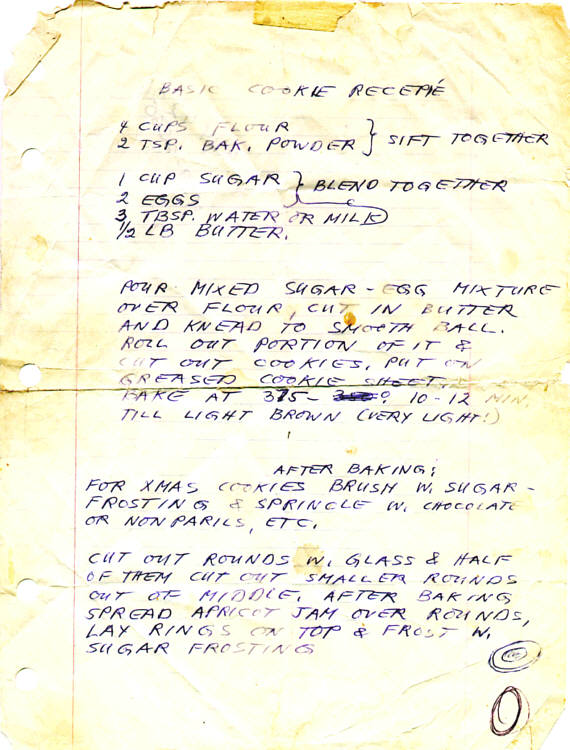 BASIC COOKIE RECEPIÉ
4 CUPS FLOUR
2 TSP. BAK. POWDER } SIFT TOGETHER
1 CUP SUGAR
2 EGGS } BLEND TOGETHER
3 TBSP. WATER OR MILK
1/2 LB BUTTER.
POUR MIXED SUGAR - EGG MIXTURE
OVER FLOUR, CUT IN BUTTER
AND KNEAD TO SMOOTH BALL.
ROLL OUT PORTION OF IT &
CUT OUT COOKIES, PUT ON
GREASED COOKIE SHEET,
BAKE AT 375- 10-12 MIN.
TILL LIGHT BROWN (VERY LIGHT!)
AFTER BAKING;
FOR XMAS COOKIES BRUSH W. SUGAR-
FROSTING & SPRINCLE W. CHOCOLATE
OR NONPARILS, ETC.
CUT OUT ROUNDS W. GLASS & HALF
OF THEM CUT OUT SMALLER ROUNDS
OUT OF MIDDLE. AFTER BAKING
SPREAD APRICOT JAM OVER ROUNDS,
LAY RINGS ON TOP & FROST W.
SUGAR FROSTING